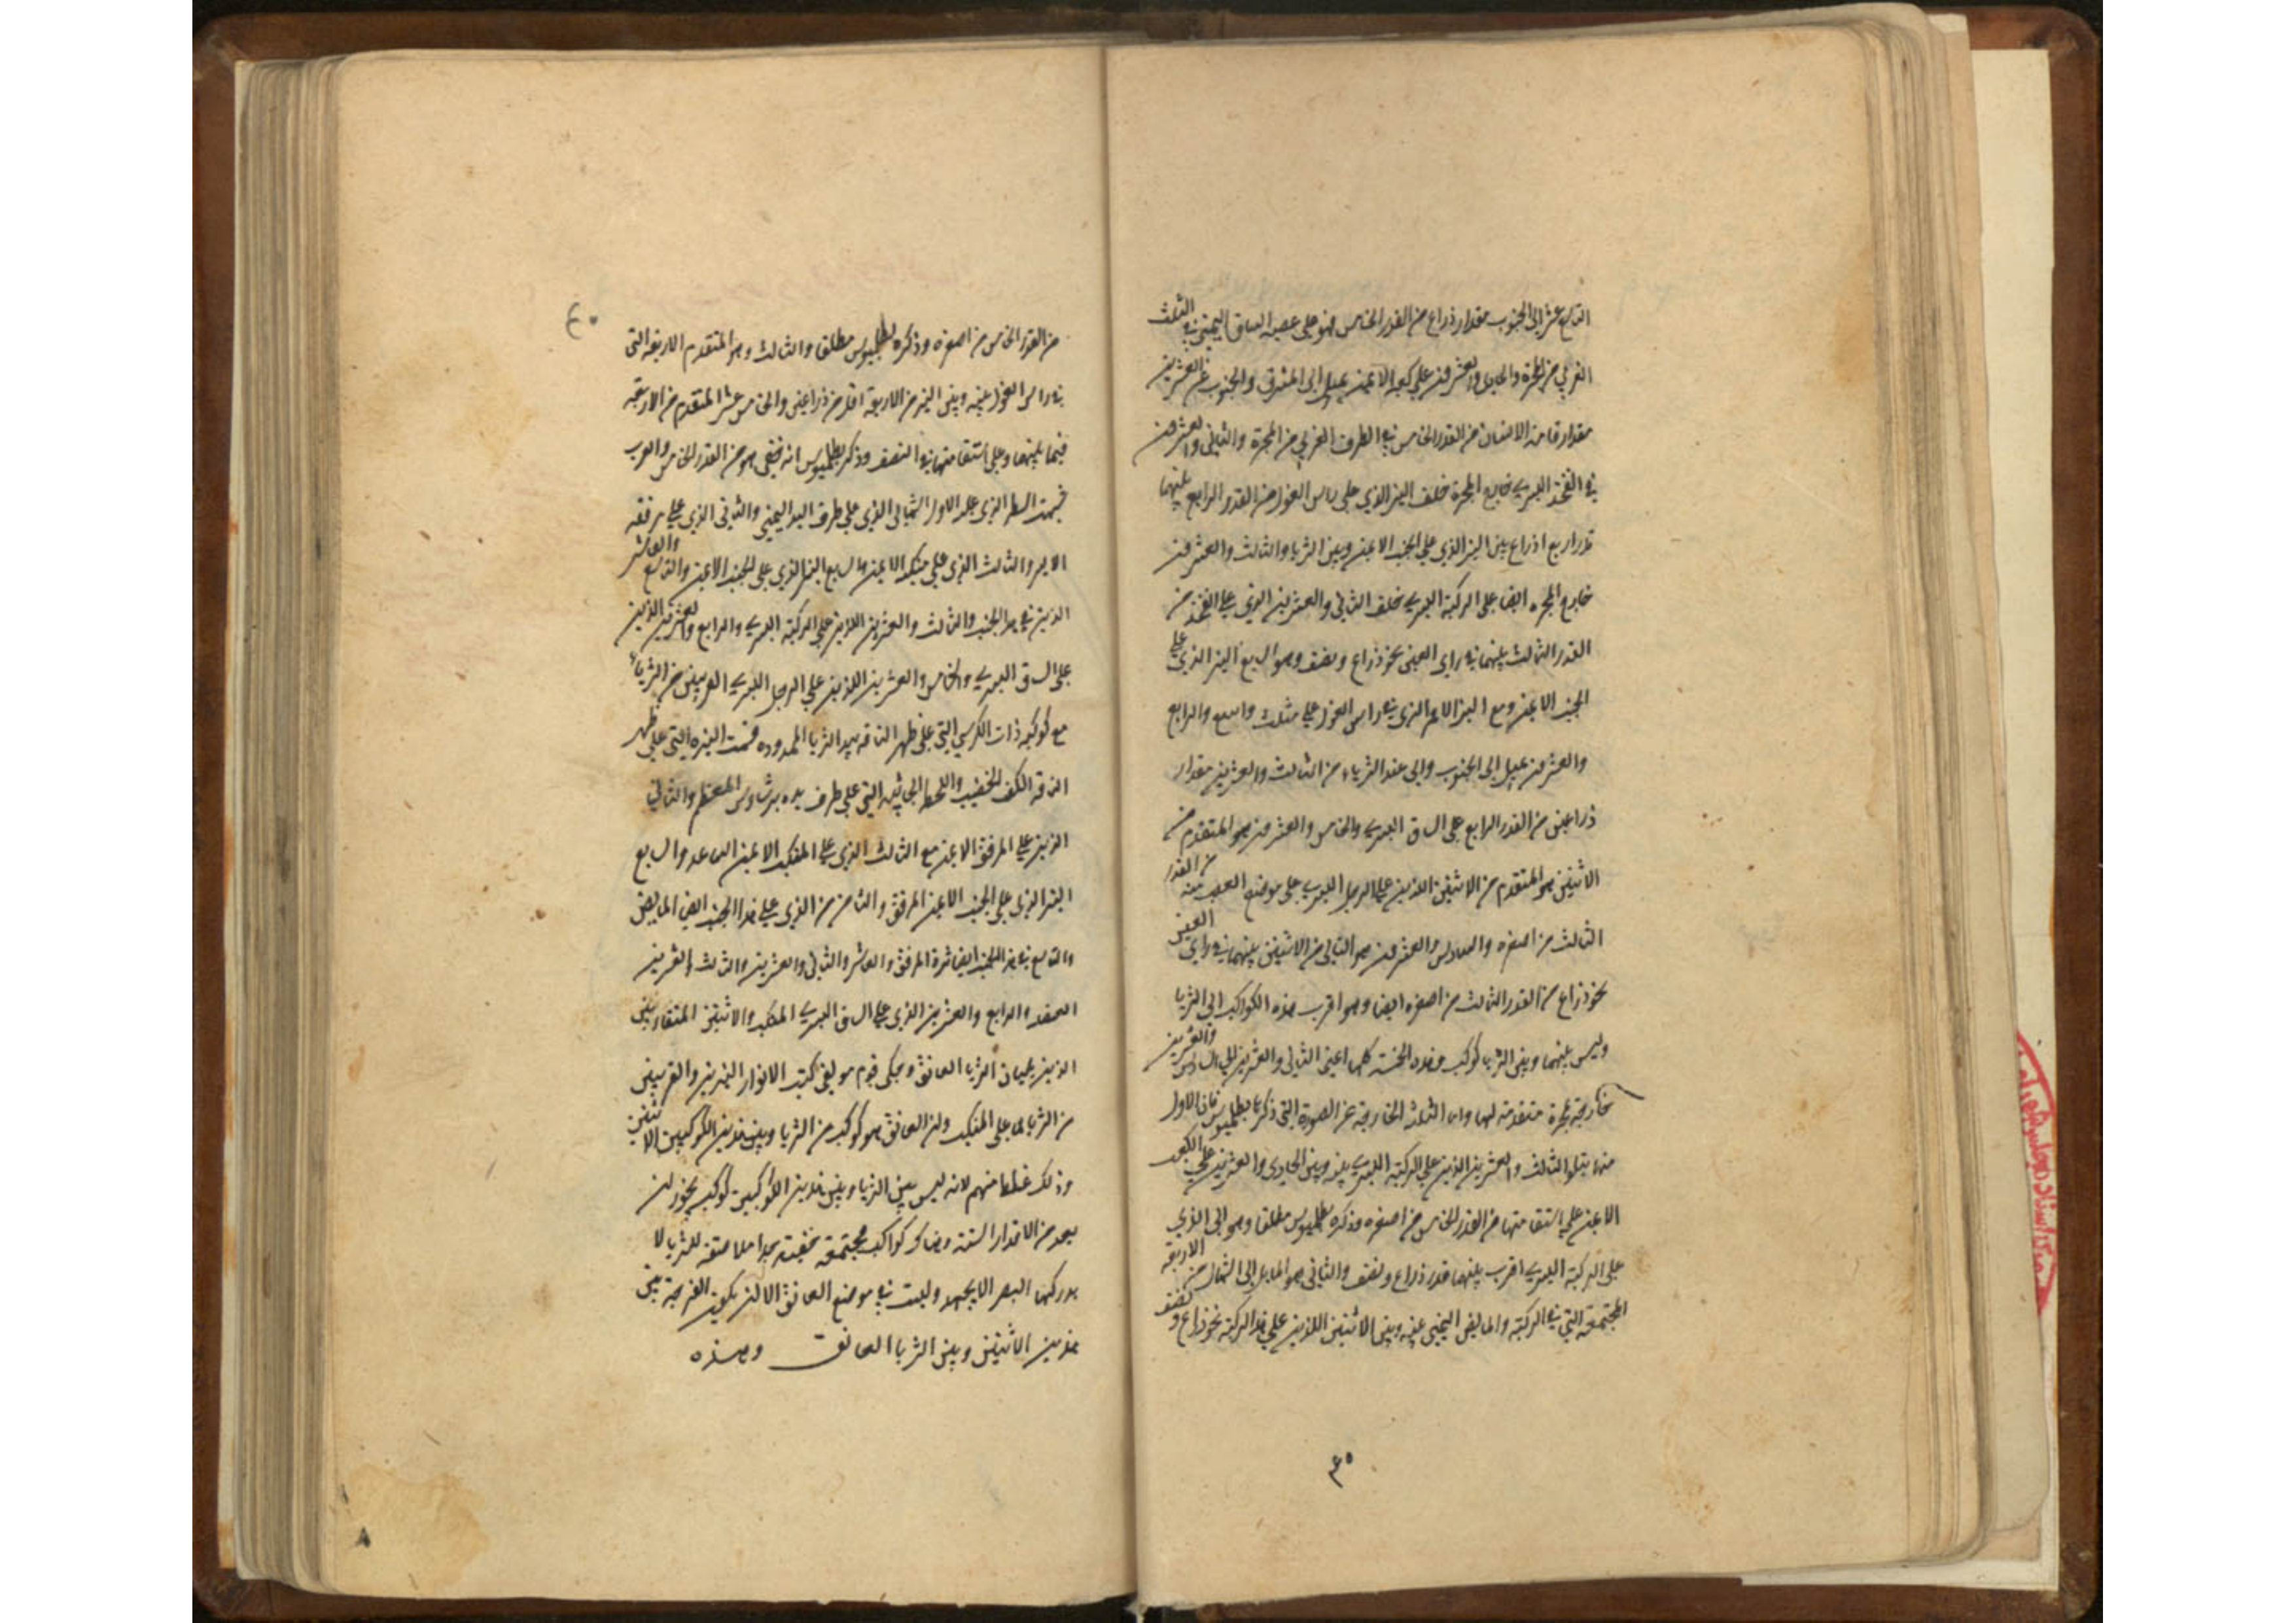 التاسع عشر الى الجنوب مقدار ذراع من القدر الخامس فهو على عصبه الساق اليمنى فى الثلث
الغربي من المجرة والحادي والعشرون على كعبه الايمن يميل الى المشرق والجنوب عن العشرين
مقدار قامة الانسان من القدر الخامس فى الطرف الغربي من المجرة والثاني والعشرون
فى الفخذ اليسرى خارج المجرة خلف النير الذي على راس الغول من القدر الرابع بينهما
قدر اربع اذراع بين النير الذي على الجنب الايمن وبين الثريا والثالث والعشرون
خارج المجره ايضا على الركبة اليسرى خلف الثاني والعشرين الذي على الفخذ من
القدر الثالث بينهما فى راى العين نحو ذراع ونصف وهو السابع النير الذي على
الجنب الايمن ومع النير الاعم الذي فى راس الغول على مثلث واسع والرابع
والعشرون يميل الى الجنوب والى عند الثرياء من الثالث والعشرين مقدار
ذراعين من القدر الرابع على الساق اليسرى والخامس والعشرون هو المتقدم من
الاثنين هو المتقدم من الاثنين اللذين على الرجل اليسرى على موضع العصب منه من القدر
الثالث من اصغره والسادس والعشرون هو التالي من الاثنين بينهما فى راى العين
نحو ذراع من القدر الثالث من اصغره ايضا وهو اقرب هذه الكواكب الى الثريا
وليس بينهما وبين الثريا كوكب وهذه الخمسة كلها اعنى الثاني والعشرين الى السادس والعشرين
خارجة المجرة متقدمة لها واما الثلثة الخارجة عن الصورة التى ذكرها بطلميوس فان الاول
منها يتلو الثالث والعشرين الذين على الركبة اليسرى بينه وبين الحادي والعشرين على الكعب
الايمن على استقامتها من القدر الخامس من اصغره وذكره بطلميوس مطلقا وهو الى الذي
على الركبة اليسرى اقرب بينهما قدر ذراع ونصف والثاني هو المايل الى الشمال من الاربعة
المجتمعة التى فى الركبة والمابض اليمنى عنه وبين الاثنين اللذين على هذا الركبة نحو ذراع ونصف
٤٥
٤٠
من القدر الخامس من اصغره وذكره بطلميوس مطلقا والثالث وهو المتقدم الاربعة التى
فى راس الغول عنه وبين النير من الاربعة اقل من ذراعين والخامس عشر المتقدم من الاربعة
فيما بينهما وعلى استقامتها فى النصف وذكر بطلميوس انه خفى هو من القدر الخامس والعرب
سمت السطر الذي على الاول الشمالي الذي على طرف اليد اليمنى والثاني الذي على مرفقه
الايمن والثالث الذي على منكبه الايمن والسابع النير الذي على الجنب الايمن والتاسع والعاشر
الذين فى هذا الجنب والثالث والعشرين اللذين على الركبة اليسرى والرابع والعشرين الذين
على الساق اليسرى والخامس والعشرين اللذين على الرجل اليسرى القريبين من الثرياء
مع كوكبه ذات الكرسي التى على ظهر الناقه يد الثريا الممدوده وسمت النيره التى على ظهر
الناقه الكف الخضيب واللطخا السحابيه التى على طرف يده برشاوس المعصم والثاني
الذين على المرفق الايمن مع الثالث الذي على المنكب الايمن الساعد والسابع
النير الذي على الجنب الايمن المرفق والثامن من الذي على هذا الجنب ايضا المابض
والتاسع فى هذا الجنب ايضا ابرة المرفق والعاشر والثاني والعشرين والثالث والعشرين
العضد والرابع والعشرين الذي على الساق اليسرى المنكب والاثنين المتقاربين
الذين يليان الثريا العاتق وحكى قوم مولفى كتب الانوار النيرين والقريبين
من الثريا هما على المنكب وان العاتق هو كوكب من الثريا وبين هذين الكوكبين الاثنين
وذلك غلط منهم لانه ليس بين الثريا وبين هذين الكوكبين كوكب يجوز ان
يعد من الاقدار الستة وهناك كواكب مجتمعة خفية جدا ملاصقه للثريا لا
يدركها البصر الا بجهد وليست فى موضع العاتق الا ان يكون الفرجة بين
هذين الاثنين وبين الثريا العاتق وهذه
٨